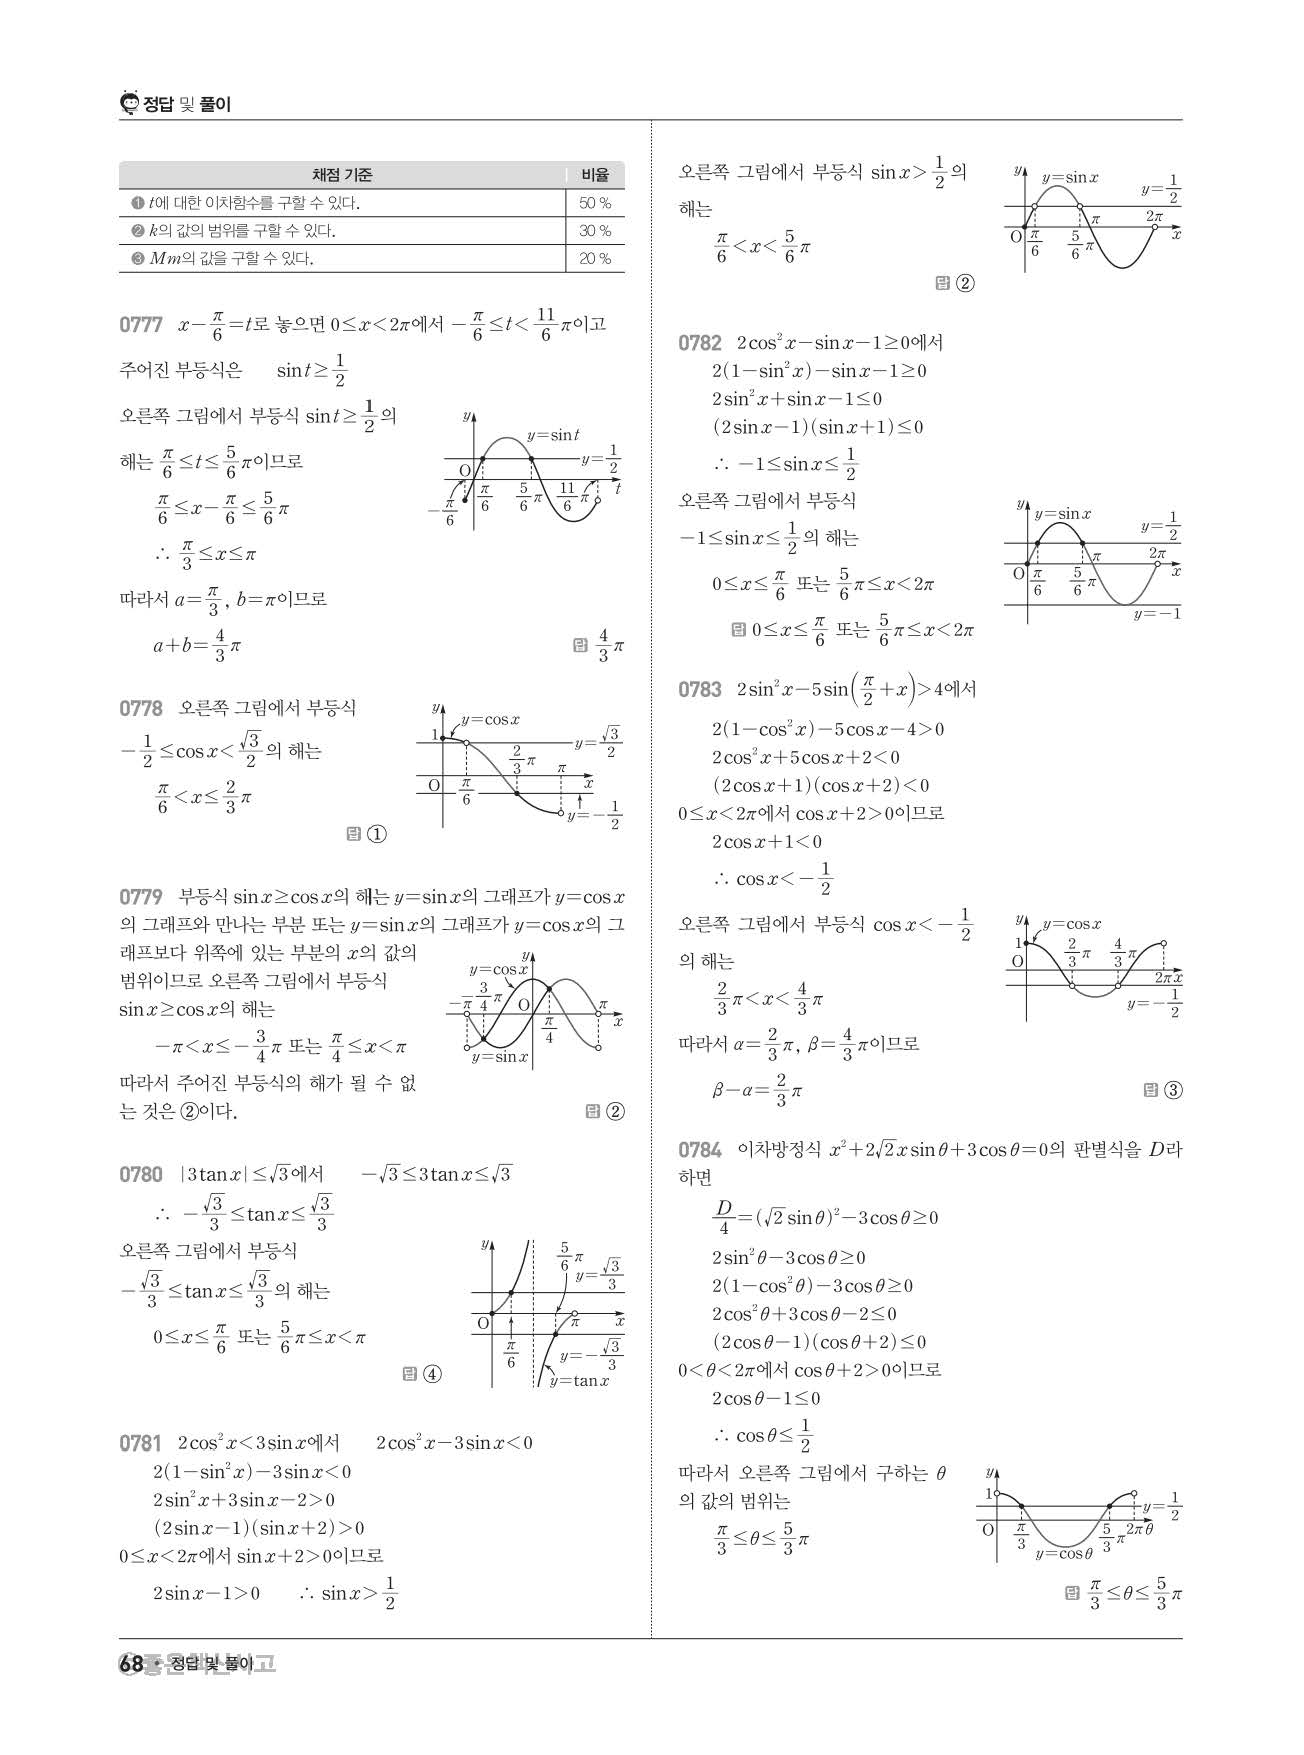 정답 및 풀이
채점 기준 비율
❶ t에 대한 이차함수를 구할 수 있다. 50 %
❷ k의 값의 범위를 구할 수 있다. 30 %
❸ Mm의 값을 구할 수 있다. 20 %
0777 x-π/6=t로 놓으면 0≤x<2π에서 -π/6≤t<11/6π이고
주어진 부등식은 sin t≥1/2
오른쪽 그림에서 부등식 sin t≥1/2의
해는 π/6≤t≤5/6π이므로
π/6≤x-π/6≤5/6π
∴ π/3≤x≤π
따라서 a=π/3, b=π이므로
a+b=4/3π 답 4/3π
y y=sin t y=1/2 O -π/6 π/6 5/6π 11/6π t
0778 오른쪽 그림에서 부등식
-1/2≤cos x<√3/2의 해는
π/6<x≤2/3π
답 ①
y 1 y=cos x y=√3/2 2/3π π O π/6 x y=-1/2
0779 부등식 sin x≥cos x의 해는 y=sin x의 그래프가 y=cos x
의 그래프와 만나는 부분 또는 y=sin x의 그래프가 y=cos x의 그
래프보다 위쪽에 있는 부분의 x의 값의
범위이므로 오른쪽 그림에서 부등식
sin x≥cos x의 해는
-π<x≤-3/4π 또는 π/4≤x<π
따라서 주어진 부등식의 해가 될 수 없
는 것은 ②이다. 답 ②
y y=cos x -π -3/4π O π/4 π x y=sin x
0780 |3tan x|≤√3에서 -√3≤3tan x≤√3
∴ -√3/3≤tan x≤√3/3
오른쪽 그림에서 부등식
-√3/3≤tan x≤√3/3의 해는
0≤x≤π/6 또는 5/6π≤x<π
답 ④
y 5/6π y=√3/3 O π/6 π x y=-√3/3 y=tan x
0781 2cos²x<3sin x에서 2cos²x-3sin x<0
2(1-sin²x)-3sin x<0
2sin²x+3sin x-2>0
(2sin x-1)(sin x+2)>0
0≤x<2π에서 sin x+2>0이므로
2sin x-1>0 ∴ sin x>1/2
오른쪽 그림에서 부등식 sin x>1/2의
해는
π/6<x<5/6π
답 ②
y y=sin x y=1/2 O π/6 5/6π π 2π x
0782 2cos²x-sin x-1≥0에서
2(1-sin²x)-sin x-1≥0
2sin²x+sin x-1≤0
(2sin x-1)(sin x+1)≤0
∴ -1≤sin x≤1/2
오른쪽 그림에서 부등식
-1≤sin x≤1/2의 해는
0≤x≤π/6 또는 5/6π≤x<2π
답 0≤x≤π/6 또는 5/6π≤x<2π
y y=sin x y=1/2 O π/6 5/6π π 2π x y=-1
0783 2sin²x-5sin(π/2+x)>4에서
2(1-cos²x)-5cos x-4>0
2cos²x+5cos x+2<0
(2cos x+1)(cos x+2)<0
0≤x<2π에서 cos x+2>0이므로
2cos x+1<0
∴ cos x<-1/2
오른쪽 그림에서 부등식 cos x<-1/2
의 해는
2/3π<x<4/3π
따라서 α=2/3π, β=4/3π이므로
β-α=2/3π 답 ③
y 1 y=cos x O 2/3π 4/3π 2π x y=-1/2
0784 이차방정식 x²+2√2x sin θ+3cos θ=0의 판별식을 D라
하면
D/4=(√2 sin θ)²-3cos θ≥0
2sin²θ-3cos θ≥0
2(1-cos²θ)-3cos θ≥0
2cos²θ+3cos θ-2≤0
(2cos θ-1)(cos θ+2)≤0
0<θ<2π에서 cos θ+2>0이므로
2cos θ-1≤0
∴ cos θ≤1/2
따라서 오른쪽 그림에서 구하는 θ
의 값의 범위는
π/3≤θ≤5/3π
y 1 y=1/2 O π/3 5/3π 2π θ y=cos θ
답 π/3≤θ≤5/3π
68 • 정답 및 풀이